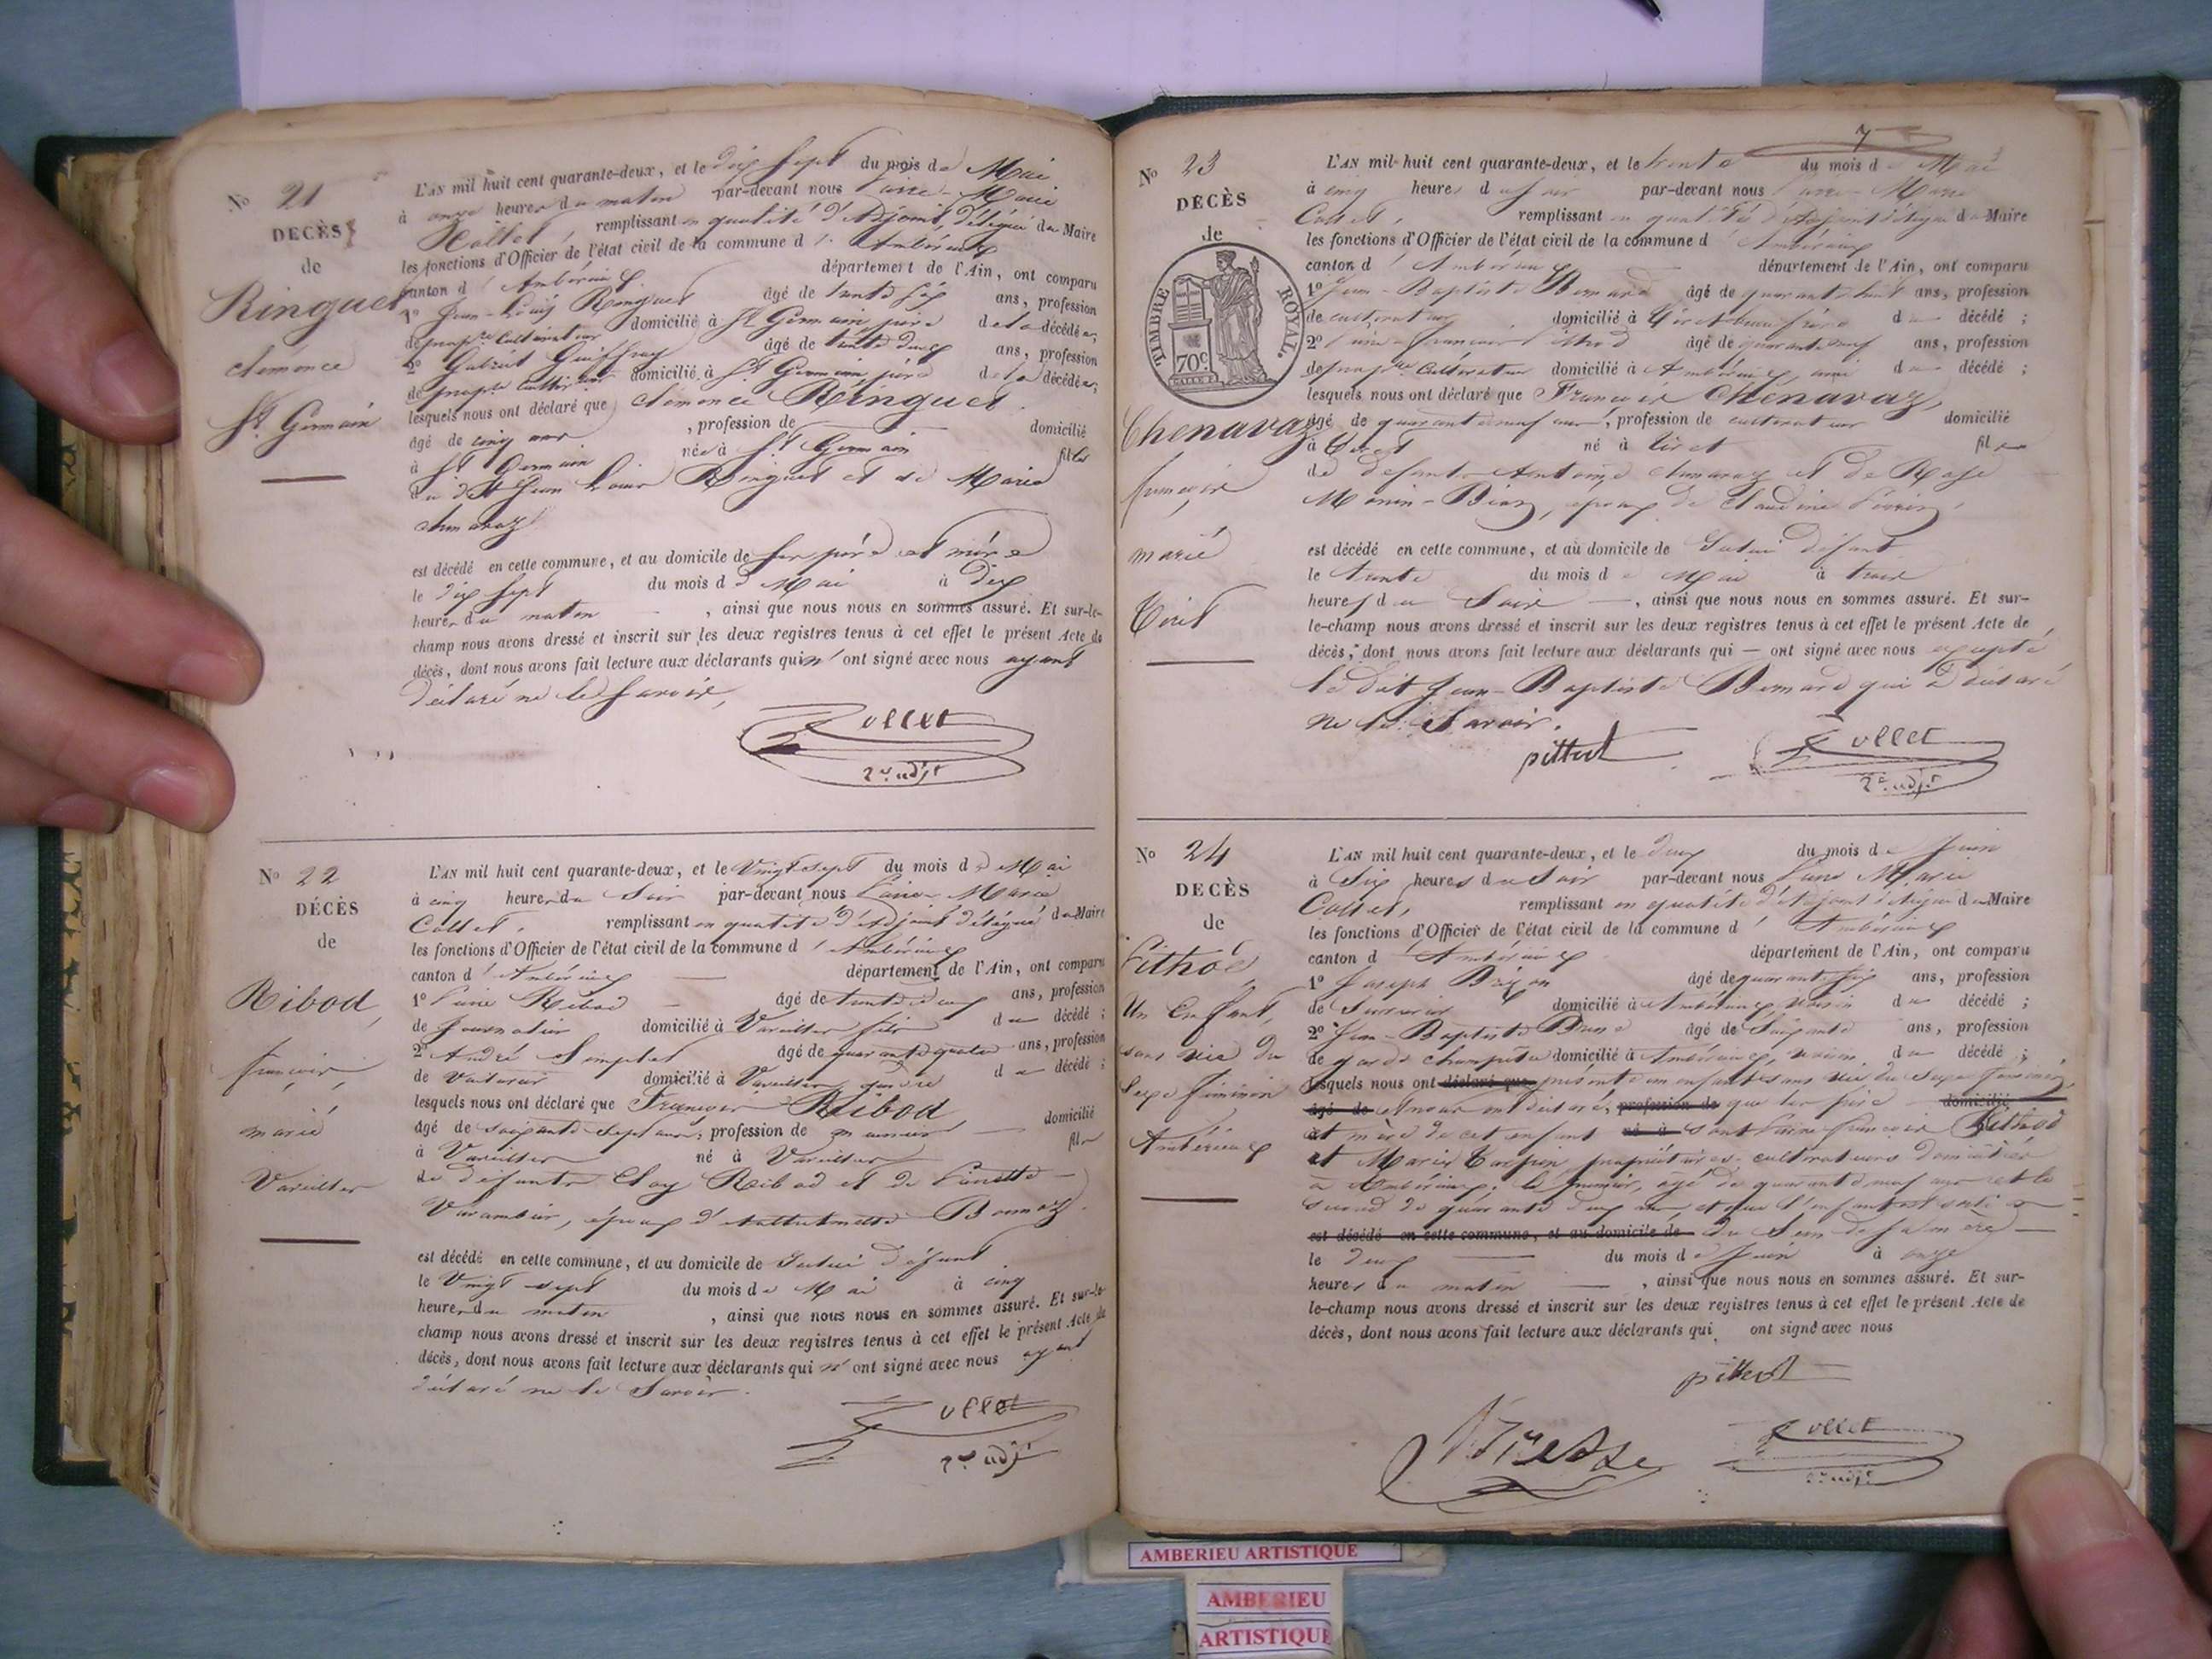 N° 21
DECÈS
de
Ringuet
clémence
St. Germain
L'AN mil huit cent quarante-deux, et le dix sept du mois de Mai
à onze heures du matin par-devant nous Marie
Collet, remplissant en qualité d'Adjoint, délégué du Maire
les fonctions d'Officier de l'état civil de la commune d' Ambérieux
canton d' Ambérieux département de l'Ain, ont comparu
1° Jean-Louis Ringuet âgé de trente six ans, profession
de propre cultivateur domicilié à St Germain, père de la décédée;
2° Gabriel âgé de trente deux ans, profession
de propre cultivateur domicilié à St Germain, de la décédée;
lesquels nous ont déclaré que clémence Ringuet
âgé de cinq ans , profession de domicilié
à St Germain née à St Germain fille
du dit Jean Louis Ringuet et de Marie
chenavaz
est décédé en cette commune, et au domicile de ses père et mère
le dix sept du mois de Mai à dix
heures du matin , ainsi que nous nous en sommes assuré. Et sur-le-
champ nous avons dressé et inscrit sur les deux registres tenus à cet effet le présent Acte de
décès, dont nous avons fait lecture aux déclarants qui n' ont signé avec nous ayant
déclaré ne le savoir,
Collet
2e adjt
N° 22
DÉCÈS
de
Ribod,
françois,
marié
Vareilles
L'AN mil huit cent quarante-deux, et le Vingt sept du mois de Mai
à cinq heures du Soir par-devant nous Marie
Collet, remplissant en qualité d'Adjoint délégué du Maire
les fonctions d'Officier de l'état civil de la commune d' Ambérieux
canton d' Ambérieux département de l'Ain, ont comparu
1° Ribod âgé de trente deux ans, profession
de Journalier domicilié à Vareilles fils du décédé;
2° André âgé de quarante quatre ans, profession
de Voiturier domicilié à Vareilles gendre du décédé;
lesquels nous ont déclaré que François Ribod
âgé de soixante sept ans, profession de domicilié
à Vareilles né à Vareilles fils
de défunts Ribod et de
Varambier, époux d'
est décédé en cette commune, et au domicile de défunt
le Vingt sept du mois de Mai à cinq
heures du matin , ainsi que nous nous en sommes assuré. Et sur-le-
champ nous avons dressé et inscrit sur les deux registres tenus à cet effet le présent Acte de
décès, dont nous avons fait lecture aux déclarants qui n' ont signé avec nous ayant
déclaré ne le Savoir.
Collet
2e adjt
7
N° 23
DÉCÈS
de
TIMBRE ROYAL.
70c
Chenavaz
françois,
marié
L'AN mil huit cent quarante-deux, et le trente du mois de Mai
à cinq heures du soir par-devant nous Marie
Collet, remplissant en qualité d'Adjoint délégué du Maire
les fonctions d'Officier de l'état civil de la commune d' Ambérieux
canton d' Ambérieux département de l'Ain, ont comparu
1° Jean-Baptiste Bernard âgé de quarante huit ans, profession
de cultivateur domicilié à beau frère du décédé;
2° françois âgé de quarante neuf ans, profession
de propre Cultivateur domicilié à Ambérieux, ami du décédé;
lesquels nous ont déclaré que François Chenavaz,
âgé de quarante neuf ans, profession de cultivateur domicilié
à né à fils
de défunts Antoine chenavaz et de Rose
époux de Claudine
est décédé en cette commune, et au domicile de défunt
le trente du mois de Mai à trois
heures du Soir —, ainsi que nous nous en sommes assuré. Et sur-
le-champ nous avons dressé et inscrit sur les deux registres tenus à cet effet le présent Acte de
décès, dont nous avons fait lecture aux déclarants qui — ont signé avec nous excepté
le dit Jean-Baptiste Bernard qui a déclaré
ne le Savoir.
Collet
2e adjt
N° 24
DÉCÈS
de
Pithod
Un Enfant
sans vie du
sexe féminin
Ambérieux
L'AN mil huit cent quarante-deux, et le deux du mois de Juin
à Six heures du Soir par-devant nous Marie
Collet, remplissant en qualité d'Adjoint délégué du Maire
les fonctions d'Officier de l'état civil de la commune d' Ambérieux
canton d' Ambérieux département de l'Ain, ont comparu
1° Joseph âgé de quarante six ans, profession
de domicilié à Ambérieux, voisin du décédé;
2° Jean-Baptiste âgé de Soixante ans, profession
de garde champêtre domicilié à Ambérieux, voisin du décédé;
lesquels nous ont déclaré que présenté un enfant sans vie du sexe féminin,
âgé de et nous ont déclaré, profession de que les père domicilié
et mère de cet enfant né à sont françois Pithod
et Marie propriétaires-cultivateurs domiciliés
à Ambérieux, le premier, âgé de quarante neuf ans et la
seconde de quarante deux ans, et que l'enfant est sorti
est décédé en cette commune, et au domicile de du Sein de sa mère
le deux du mois de Juin à onze
heures du matin , ainsi que nous nous en sommes assuré. Et sur-
le-champ nous avons dressé et inscrit sur les deux registres tenus à cet effet le présent Acte de
décès, dont nous avons fait lecture aux déclarants qui ont signé avec nous
Collet
2e adjt
AMBERIEU ARTISTIQUE
AMBERIEU
ARTISTIQUE